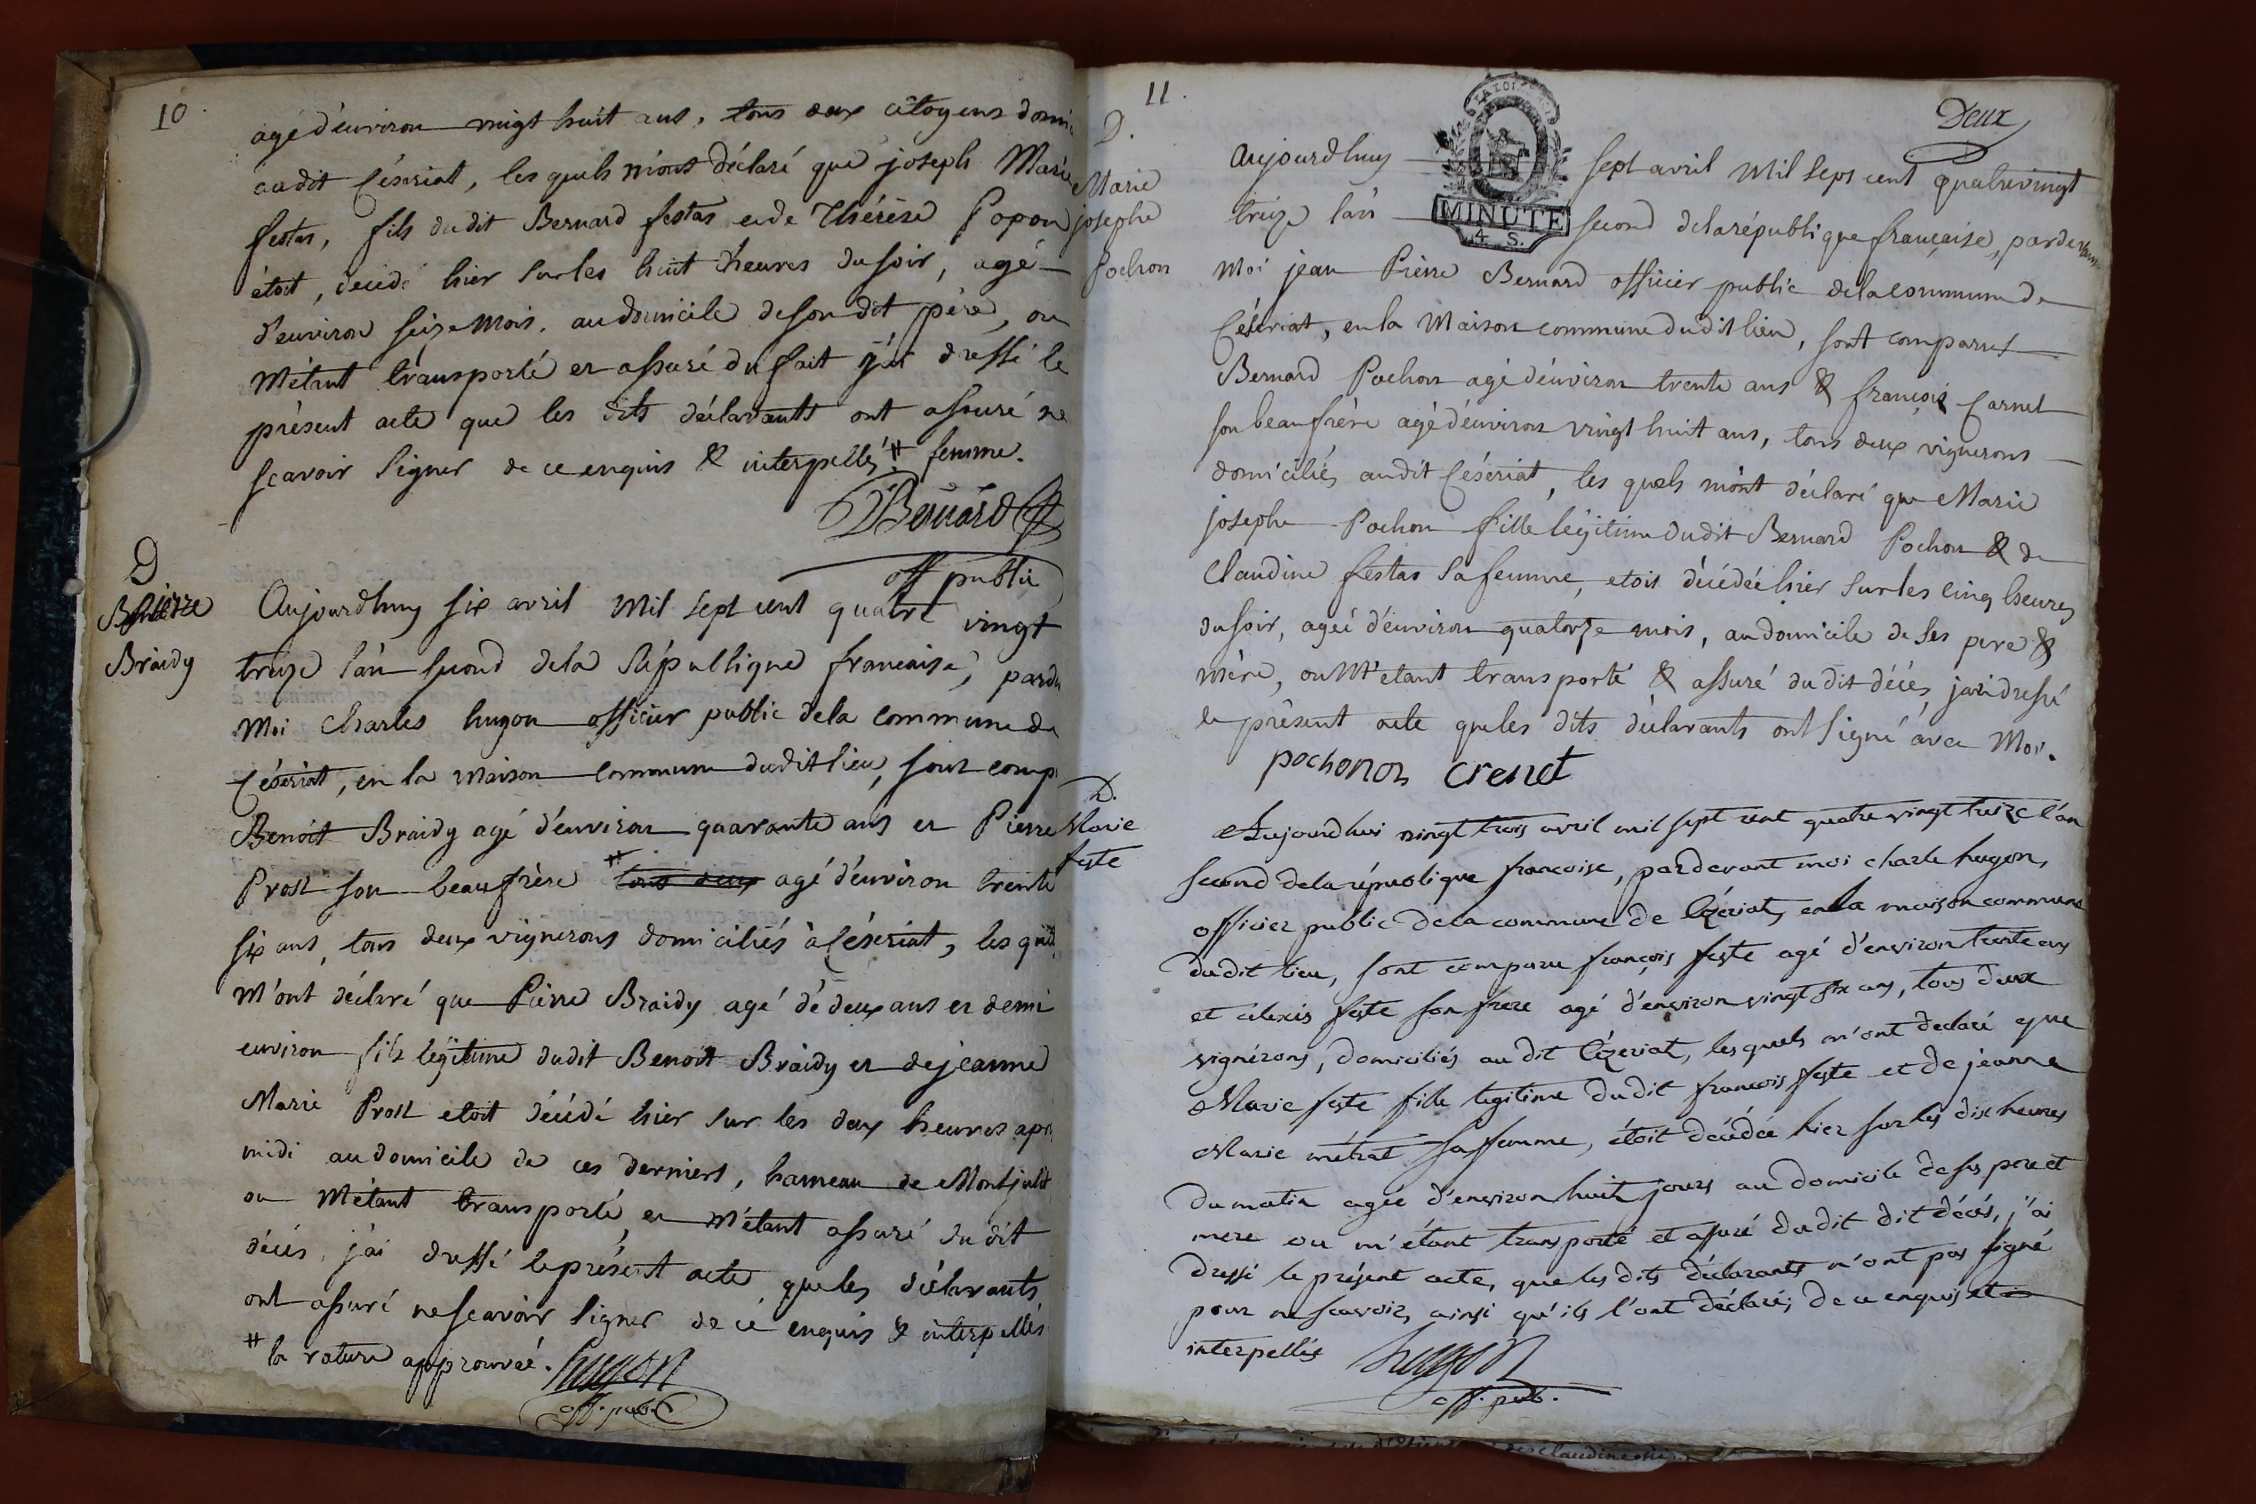 10
agé d'environ vingt huit ans, tous deux citoyens domi
audit Céseriat, les quels m'ont déclaré que joseph Marie
festas, fils dudit Bernard festas et de Thérèse Popon
étoit, décédé hier sur les huit heures du soir, agé
d'environ seize mois, au domicile de son dit père, ou
m'étant transporté et assuré du fait j'ai dressé le
présent acte que les dits déclarants ont assuré ne
scavoir signer de ce enquis & interpellés # femme.
Bernard
off public
D
Pierre
Braidy
Aujourdhuy six avril mil sept cent quatre vingt
treize l'an second de la République française, parde
moi Charles hugon officier public de la commune de
Céseriat, en la maison commune dudit lieu, sont comp
Benoit Braidy agé d'environ quarante ans et Pierre
Prost son beaufrère # tous deux agé d'environ trente
six ans, tous deux vignerons domiciliés à Céseriat, les quels
m'ont déclaré que Pierre Braidy agé de deux ans et demi
environ fils légitime dudit Benoit Braidy et de jeanne
Marie Prost etoit décédé hier sur les deux heures apr
midi au domicile de ces derniers, hameau de
ou m'étant transporté, et m'étant assuré du dit
décés, j'ai dressé le présent acte que les déclarants
ont assuré ne scavoir signer de ce enquis & interpellés
# la rature approuvée. hugon
off. pub.
11.
Deux
LA LOI
MINUTE
4 S.
D.
Marie
josephe
Pochon
Aujourdhuy sept avril mil sept cent quatrevingt
treize l'an second de la république française, pardevant
moi jean Pierre Bernard officier public de la commune de
Céseriat, en la maison commune dudit lieu, sont comparus
Bernard Pochon agé d'environ trente ans & françois Carnet
son beaufrère agé d'environ vingt huit ans, tous deux vignerons
domiciliés audit Céseriat, les quels m'ont déclaré que Marie
josephe Pochon fille légitime dudit Bernard Pochon & de
Claudine festas sa femme, etoit décédée hier sur les cinq heures
du soir, agée d'environ quatorze mois, au domicile de ses pere &
mère, ou m'etant transporté & assuré du dit décés, j'ai dressé
le présent acte que les dits déclarants ont signé avec moi.
pochonon crenet
D.
Marie
feste
Aujourdhui vingt trois avril mil sept cent quatre vingt treize l'an
second de la république françoise, pardevant moi charle hugon,
officier public de la commune de Cézeriat, en la maison commune
dudit lieu, sont comparu françois feste agé d'environ trente ans
et alexis feste son frere agé d'environ vingt six ans, tous deux
vignérons, domiciliés au dit Cézeriat, lesquels m'ont declaré que
Marie feste fille legitime dudit françois feste et de jeanne
Marie métrat sa femme, étoit decédée hier sur les dix heures
du matin agée d'environ huit jours au domicile de ses pere et
mere ou m'étant transporté et assuré du dit dit décés, j'ai
dressé le présent acte, que les dits déclarants n'ont pas signé
pour ne scavoir, ainsi qu'ils l'ont déclaré, de ce enquis et
interpellés hugon
off. pub.